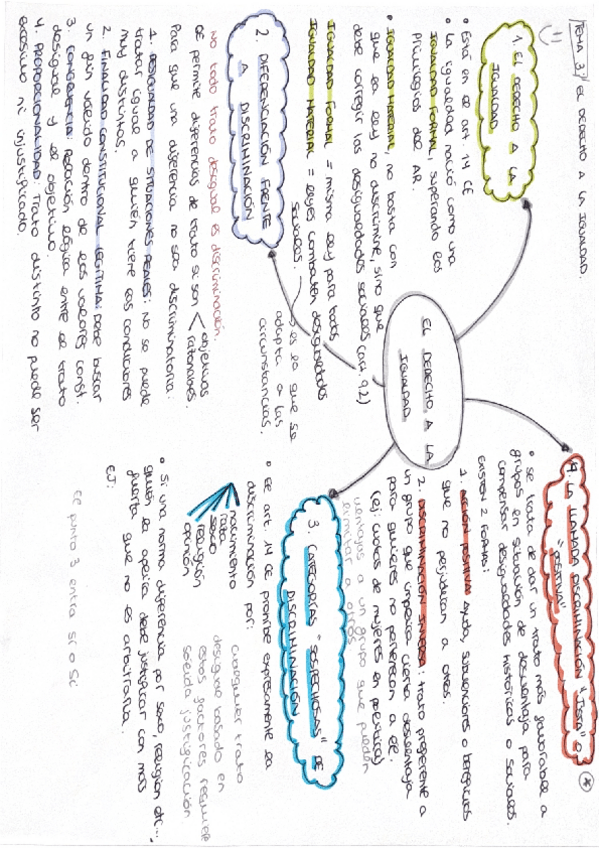 TEMA 3: EL DERECHO A LA IGUALDAD.
1. EL DERECHO A LA
IGUALDAD
• Está en el art. 14 CE
• La igualdad nació como una
IGUALDAD FORMAL, superando los
privilegios del AR.
• IGUALDAD MATERIAL, no basta con
que la ley no discrimine, sino que
debe corregir las desigualdades sociales (art. 9.2)
IGUALDAD FORMAL = misma ley para todos
IGUALDAD MATERIAL = leyes combaten desigualdades
sociales.
es la que se
adapta a las
circunstancias.
2. DIFERENCIACIÓN FRENTE
A DISCRIMINACIÓN
No todo trato desigual es discriminación.
Se permite diferencias de trato si son < objetivas
razonables.
Para que una diferencia no sea discriminatoria:
1. DESIGUALDAD DE SITUACIONES REALES: No se puede
tratar igual a quien tiene las condiciones
muy distintas.
2. FINALIDAD CONSTITUCIONAL LEGÍTIMA: Debe buscar
un fin válido dentro de los valores const.
3. CONGRUENCIA: Relación lógica entre el trato
desigual y el objetivo.
4. PROPORCIONALIDAD: Trato distinto no puede ser
excesivo ni injustificado.
EL DERECHO A LA
IGUALDAD
4. LA LLAMADA DISCRIMINACIÓN "JUSTA" o
"POSITIVA"
*
• Se trata de dar un trato más favorable a
grupos en situación de desventaja para
compensar desigualdades históricas o sociales.
EXISTEN 2 FORMAS:
1. ACCIÓN POSITIVA: Ayuda, subvenciones o beneficios
que no perjudican a otros.
2. DISCRIMINACIÓN INVERSA: trato preferente a
un grupo que implica cierta desventaja
para quienes no pertenecen a él.
(ej: cuotas de mujeres en
ventajas a un grupo que pueden
a otros
3. CATEGORÍAS "SOSPECHOSAS" DE
DISCRIMINACIÓN
• El art. 14 CE prohíbe expresamente la
discriminación por:
nacimiento
raza
sexo
religión
opinión
cualquier trato
desigual basado en
estos factores requiere
sólida justificación
• Si una norma diferencia por sexo, religión etc...,
quien la aplica debe justificar con más
fuerza que no es arbitraria.
EJ:
El punto 3 entra sí o sí